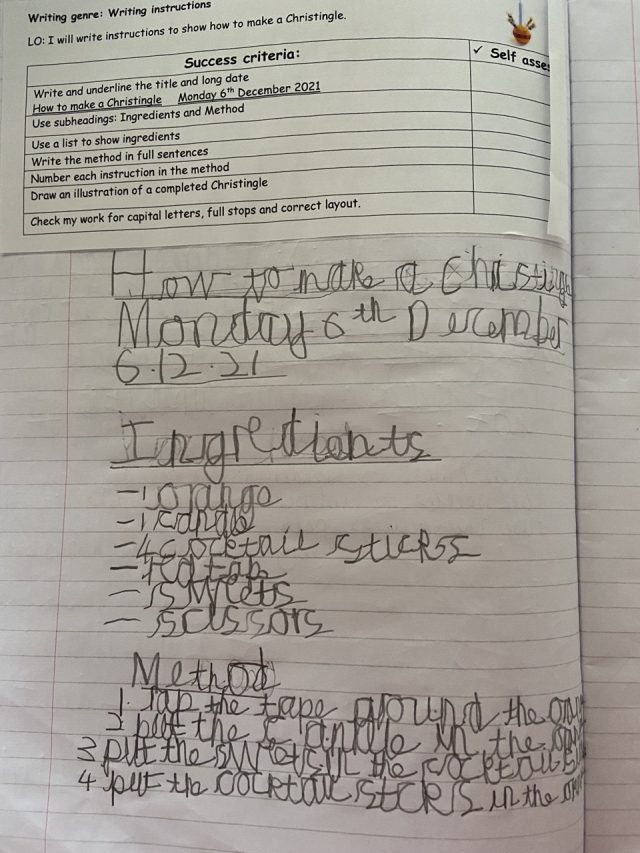 Writing genre: Writing instructions
LO: I will write instructions to show how to make a Christingle.
Success criteria:
✓ Self asse
Write and underline the title and long date
How to make a Christingle Monday 6th December 2021
Use subheadings: Ingredients and Method
Use a list to show ingredients
Write the method in full sentences
Number each instruction in the method
Draw an illustration of a completed Christingle
Check my work for capital letters, full stops and correct layout.
How to make a Christing
Monday 6th December
6.12.21
Ingredients
-1 orange
-1 candle
-4 cocktail stickss
-red tap
- sweets
- scissors
Method
1. Tap the tape around the
2 put the candle in the
3 put the sweets in the cocktail
4 put the cocktail stcks in the